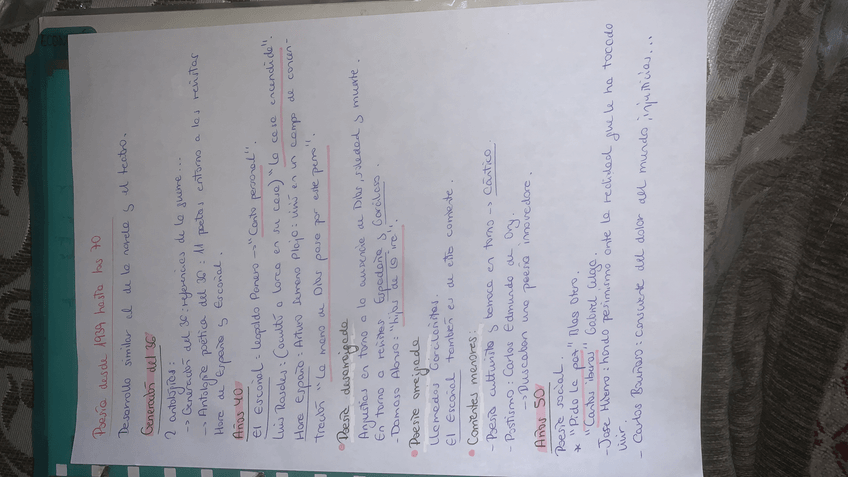 Poesía desde 1939 hasta los 70
Desarrollo similar al de la novela y el teatro.
Generación del 36
2 antologías:
-> Generación del 36: referencias de la guerra...
-> Antología poética del 36: 11 poetas entorno a las revistas
Hora de España y Escorial.
Años 40
El Escorial: Leopoldo Panero -> "Canto personal".
Luis Rosales: (acultó a Lorca en su casa) "la casa encendida".
Hora España: Arturo Serrano Plaja: vivió en un campo de concen-
tración "La mano de Dios pasa por este perro".
Poesía desarraigada
Angustias en torno a la ausencia de Dios, soledad y muerte.
En torno a revistas Espadaña y Garcilaso.
-Damaso Alonso: "hijos de la ira".
Poesía arraigada
Llamados Garcilasistas.
El Escorial también es de esta corriente.
Corrientes menores:
-Poesía culturista y barroca en torno -> Cántico.
-Postismo: Carlos Edmundo de Ory.
-> Buscaban una poesía innovadora.
Años 50
Poesía social.
* "Pido la paz" Blas Otero.
"Cantos iberos" Gabriel Celaya.
-Jose Hierro: hondo pesimismo ante la realidad que le ha tocado
vivir.
- Carlos Bousoño: consciente del dolor del mundo, injusticias...